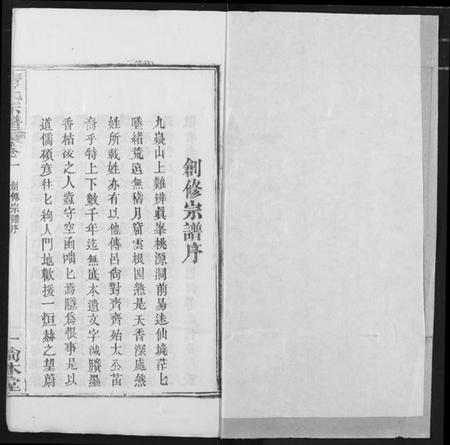 創修宗譜序
九嶷山上難辨眞峯桃源洞前易迷仙境茫匕
墜緒荒遠無稽月窟雲根固無是天香深處然
姓所載姓亦有以他傳呂尙對齊齊殆太公苗
裔乎特上下數千年迄無底本遺文字減賸墨
香枯後之人蠧守空函嘴匕焉隱爲恨事是以
道儒碩彥往匕狥人門地歡援一烜赫之望蔚
氏宗譜
卷一
創修宗譜序
一
俞本堂